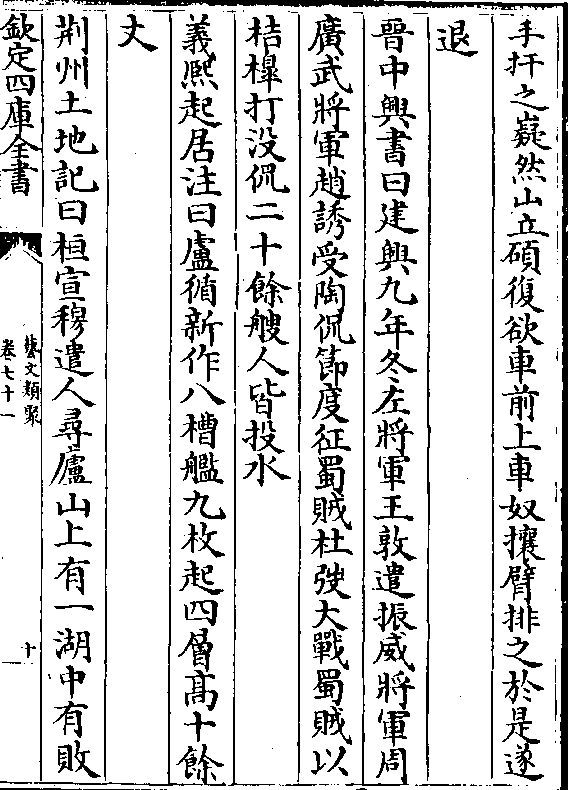 手扞之嶷然山立碩復欲車前上車奴攘臂排之於是遂
退
晉中興書曰建興九年冬左將軍王敦遣振威將軍周
廣武將軍趙誘受陶侃節度征蜀賊杜弢大戰蜀賊以
桔橰打没侃二十餘艘人皆投水
義熈起居注曰盧循新作八槽艦九枚起四層髙十餘
丈
荆州土地記曰桓宣穆遣人尋廬山上有一湖中有敗
欽定四庫全書
藝文類聚
卷七十一
十一